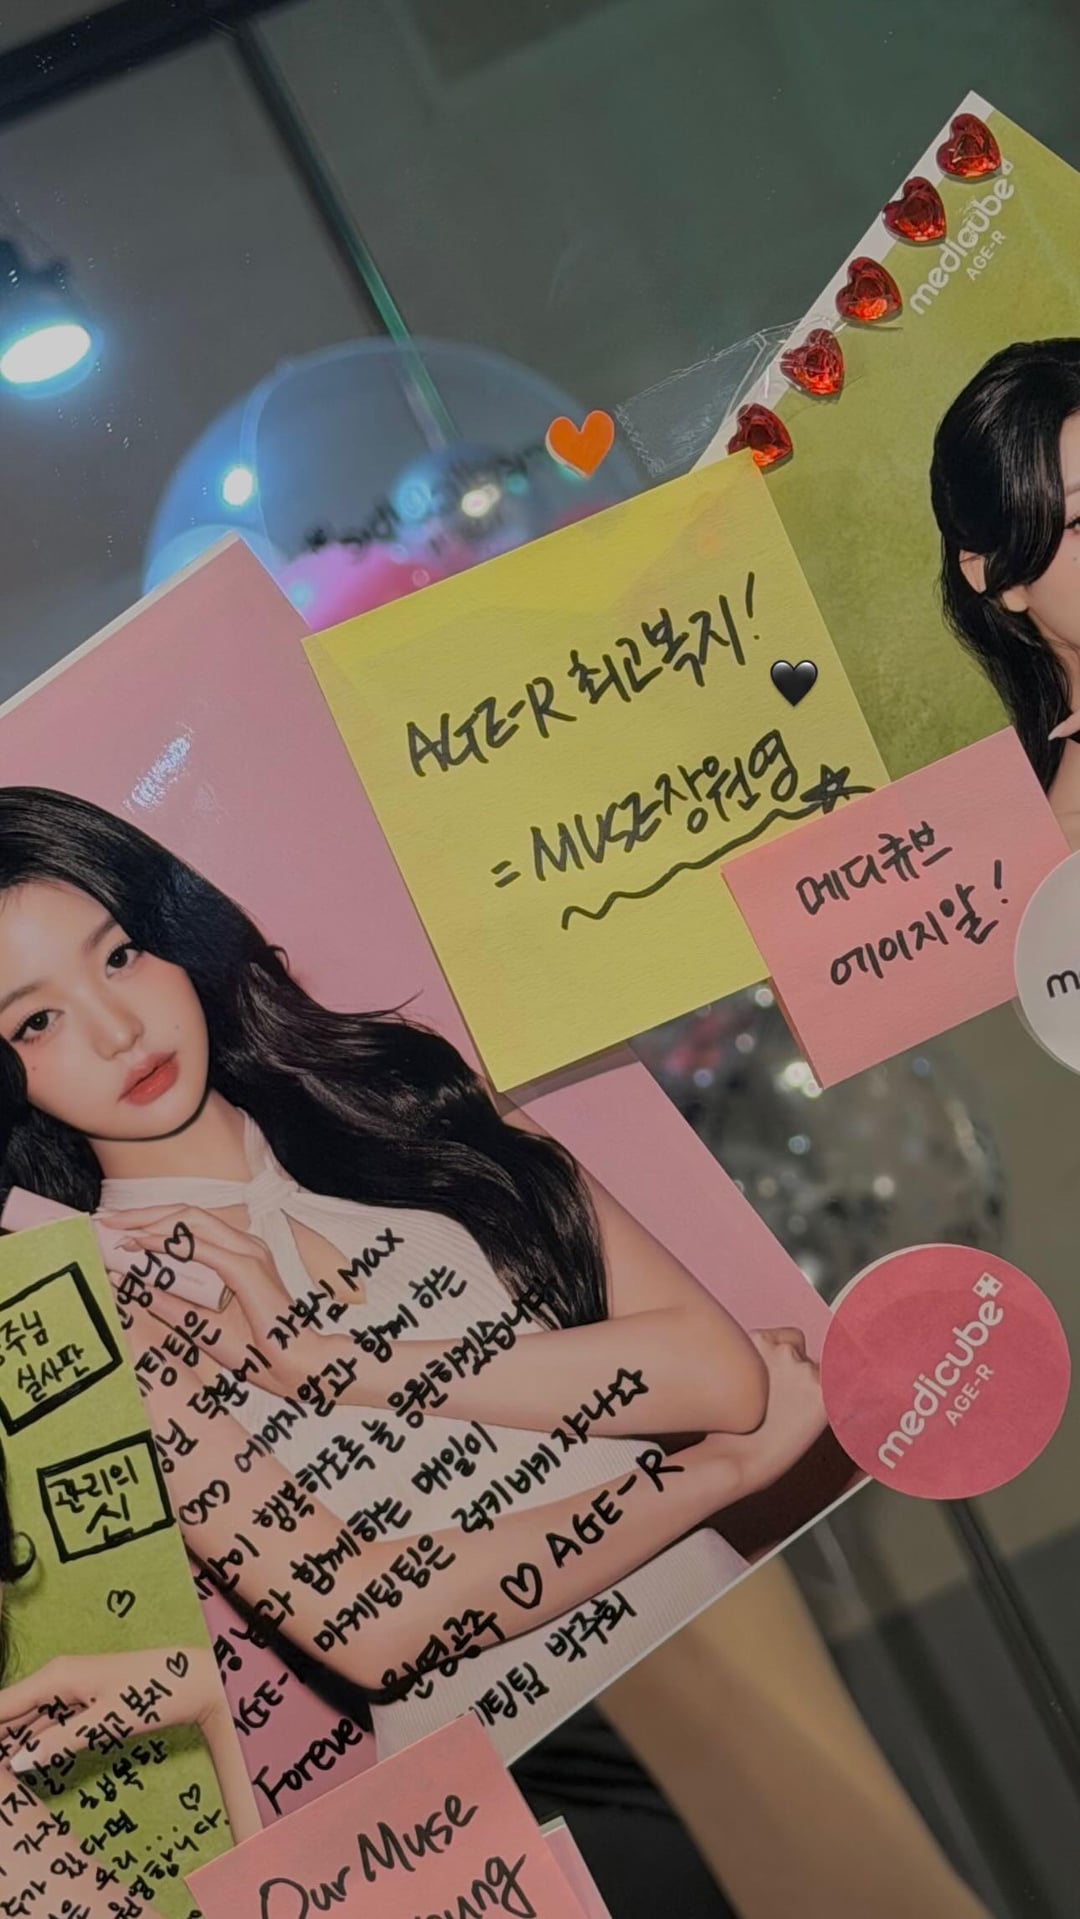 medicube
AGE-R
AGE-R 최고복지!
= MUSE장원영
메디큐브
에이지알!
medicube
AGE-R
주님
실사판
관리의
신
영님♡
팅팀은
님 덕분에 자부심 Max
에이지알과 함께 하는
이 행복하도록 늘 응원하겠습니다
영님과 함께하는 매일이
AGE- 마케팅팀은 럭키비키쟈나☆
Forever 원영공주 ♡ AGE-R
팅팀 박주희
는 건..
지알의 최고 복지♡
가장 행복한
가 있다면
우리... ♡
원영합니다.
Our Muse
oung